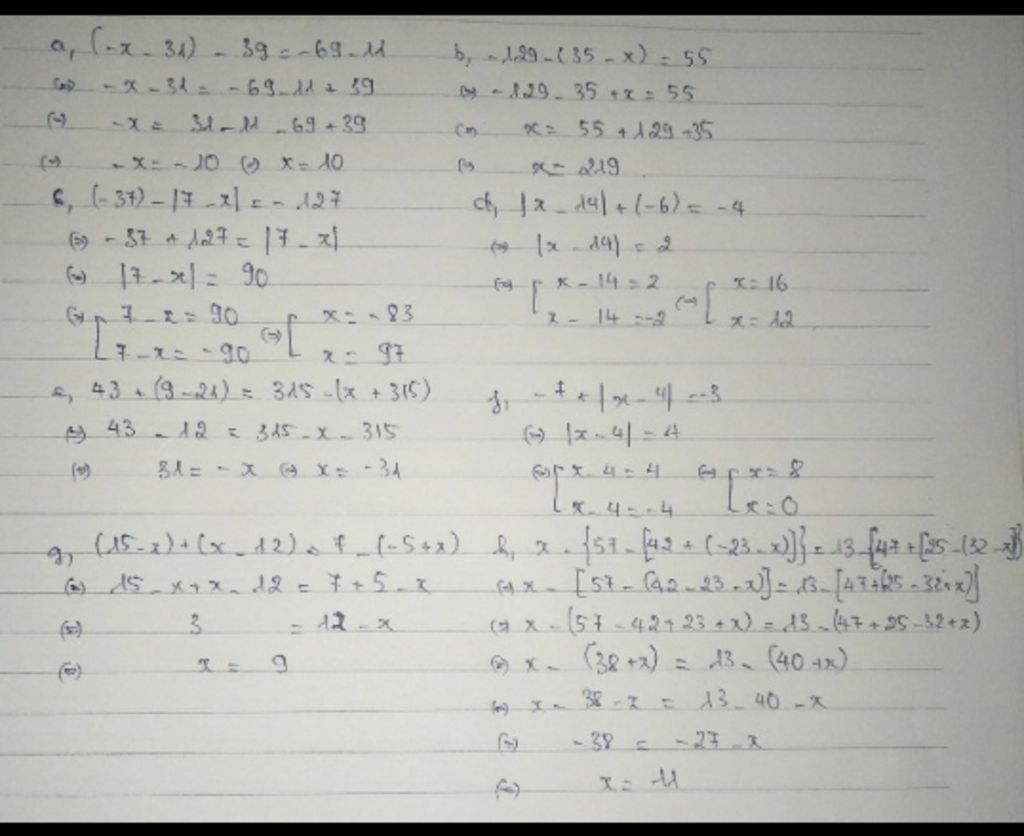 a, (-x - 31) - 39 = -69 - 11
(=) -x - 31 = -69 - 11 + 39
(=) -x = 31 - 11 - 69 + 39
(=) -x = -10 (=) x = 10
b, -129 - (35 - x) = 55
(=) -129 - 35 + x = 55
(=) x = 55 + 129 + 35
(=) x = 219
c, (-37) - |7 - x| = -127
(=) -37 + 127 = |7 - x|
(=) |7 - x| = 90
(=) [ 7 - x = 90 (=) [ x = -83
7 - x = -90 x = 97
d, |x - 14| + (-6) = -4
(=) |x - 14| = 2
(=) [ x - 14 = 2 (=) [ x = 16
x - 14 = -2 x = 12
e, 43 + (9 - 21) = 315 - (x + 315)
(=) 43 - 12 = 315 - x - 315
(=) 31 = -x (=) x = -31
f, -7 + |x - 4| = -3
(=) |x - 4| = 4
(=) [ x - 4 = 4 (=) [ x = 8
x - 4 = -4 x = 0
g, (15 - x) + (x - 12) = 7 - (-5 + x)
(=) 15 - x + x - 12 = 7 + 5 - x
(=) 3 = 12 - x
(=) x = 9
h, x - {57 - [42 + (-23 - x)]} = 13 - {47 + [25 - (32 - x)]}
(=) x - [57 - (42 - 23 - x)] = 13 - [47 + (25 - 32 + x)]
(=) x - (57 - 42 + 23 + x) = 13 - (47 + 25 - 32 + x)
(=) x - (38 + x) = 13 - (40 + x)
(=) x - 38 - x = 13 - 40 - x
(=) -38 = -27 - x
(=) x = 11